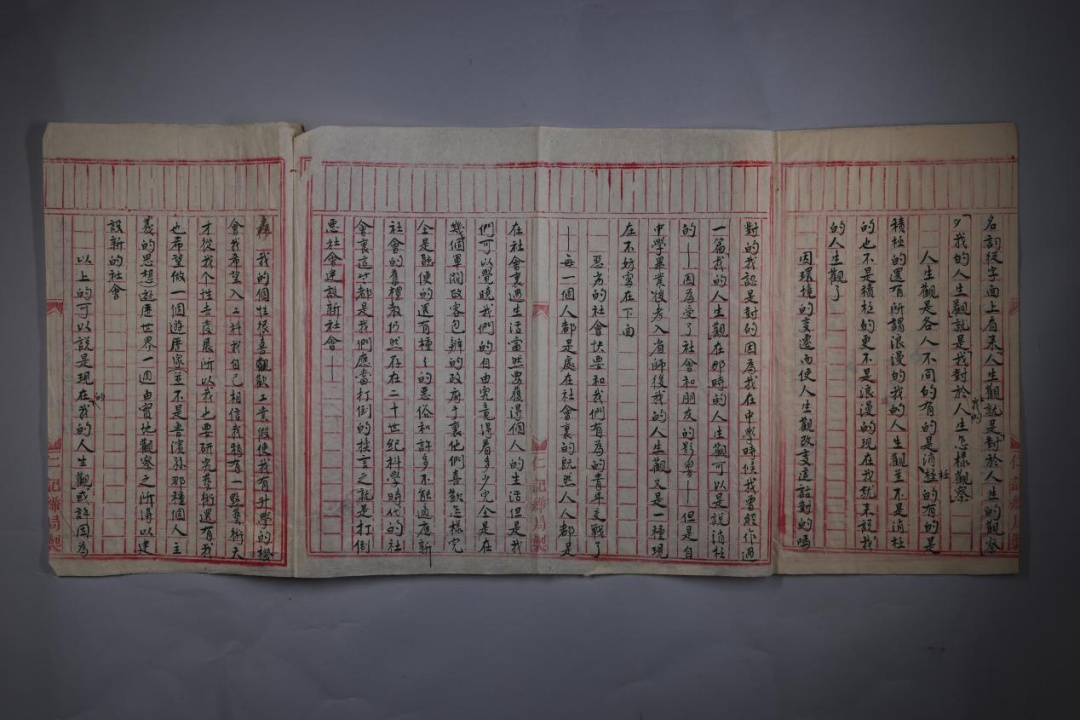 名詞從字面上看來人生觀就是對於人生的觀察
我的
「我的人生觀就是我對於人生怎樣觀察
人生觀是各人不同的有的是消極的有的是
積極的還有所謂浪漫的我的人生觀並不是消極
的也不是積極的更不是浪漫的現在我就來說我
的人生觀了
因環境的變遷而使人生觀改變這話對的嗎
對的我認是對的因為我在中學時候我曾經作過
一篇我的人生觀在那時的人生觀可以是說消極
的——因為受了社會和朋友的影響——但是自
中學畢業後考入省師後我的人生觀又是一種現
在不妨寫在下面
惡劣的社會快要和我們有為的青年交戰了
——每一個人都是處在社會裏的既然人人都是
在社會裏過生活當然要獲得個人的生活但是我
們可以覺曉我們的自由究竟得着多少完全是在
幾個軍閥政客包辦的政府手裏他們喜歡怎樣完
全是聽便的還有種々的惡俗和許多不能適應新
社會的舊禮教仍然存在在二十世紀科學時代的社
會裏這些都是我們應當打倒的換言之就是打倒
惡社會建設新社會——
我的個性很喜觀歡工業假使我有升學的機
會我希望入工科我自己相信我稍有一點藝術天
才從我个性去發展所以我也要研究藝術還有我
也希望做一個遊歷家並不是魯濱孫那種個人主
義的思想遊歷世界一週由實地觀察之所得以建
設新的社會
以上的可以說是現在我的人生觀或許因為
仁記
局製